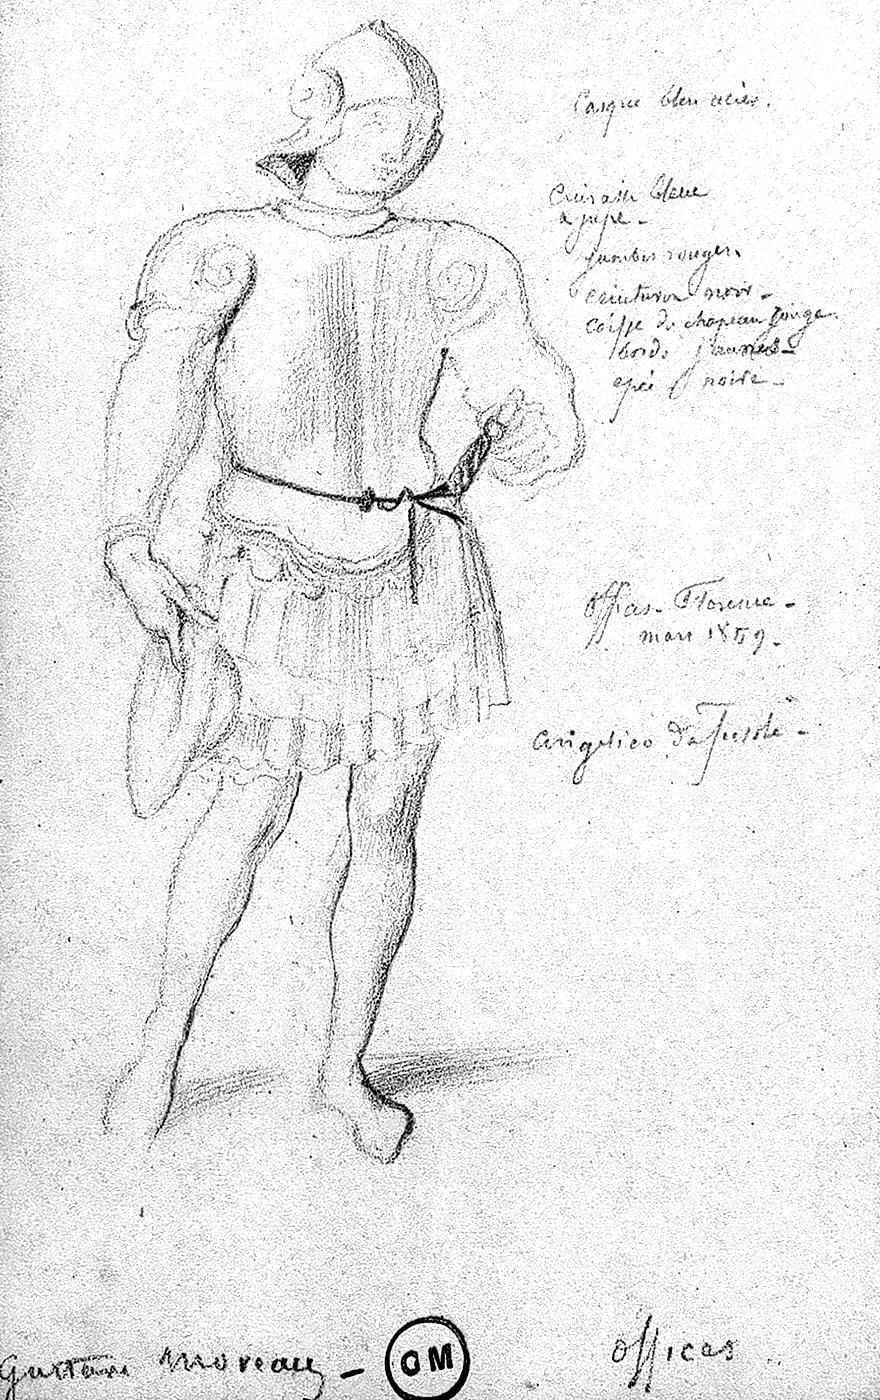 Casque bleu acier.
Cuirasse bleue
a jupe -
jambes rouges.
ceinturon noir -
coiffe de chapeau rouge
bords jaunes -
epée noire -
Offices - Florence -
mars 1859 -
Angelico da Fiesole -
Gustave Moreau -
GM
Offices